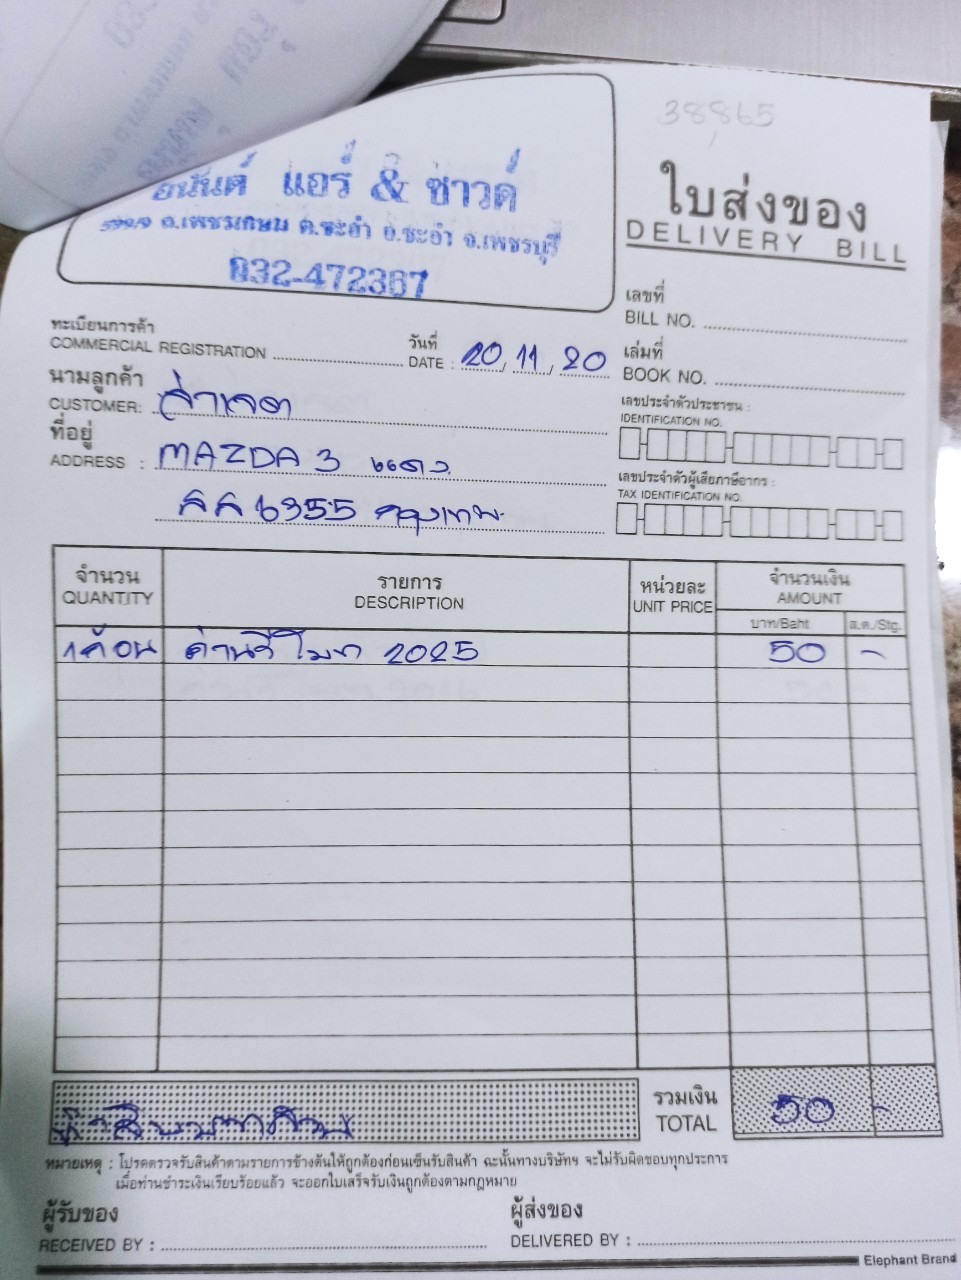 38865
อนันต์ แอร์ & ซาวด์
599/9 ถ.เพชรเกษม ต.ชะอำ อ.ชะอำ จ.เพชรบุรี
032-472367
ใบส่งของ
DELIVERY BILL
เลขที่
BILL NO.
ทะเบียนการค้า
COMMERCIAL REGISTRATION
วันที่
DATE : 20, 11, 20
เล่มที่
BOOK NO.
นามลูกค้า
CUSTOMER:
ที่อยู่
ADDRESS : MAZDA 3 แดง
6355 กรุงเทพ
เลขประจำตัวประชาชน :
IDENTIFICATION NO.
เลขประจำตัวผู้เสียภาษีอากร :
TAX IDENTIFICATION NO.
จำนวน
QUANTITY
รายการ
DESCRIPTION
หน่วยละ
UNIT PRICE
จำนวนเงิน
AMOUNT
บาท/Baht
ส.ต./Stg.
1 ก้อน ถ่านรีโมท 2025 50 -
ห้าสิบบาทถ้วน
รวมเงิน
TOTAL
50 -
หมายเหตุ : โปรดตรวจรับสินค้าตามรายการข้างต้นให้ถูกต้องก่อนเซ็นรับสินค้า ฉะนั้นทางบริษัทฯ จะไม่รับผิดชอบทุกประการ
เมื่อท่านชำระเงินเรียบร้อยแล้ว จะออกใบเสร็จรับเงินถูกต้องตามกฎหมาย
ผู้รับของ
RECEIVED BY :
ผู้ส่งของ
DELIVERED BY :
Elephant Brand